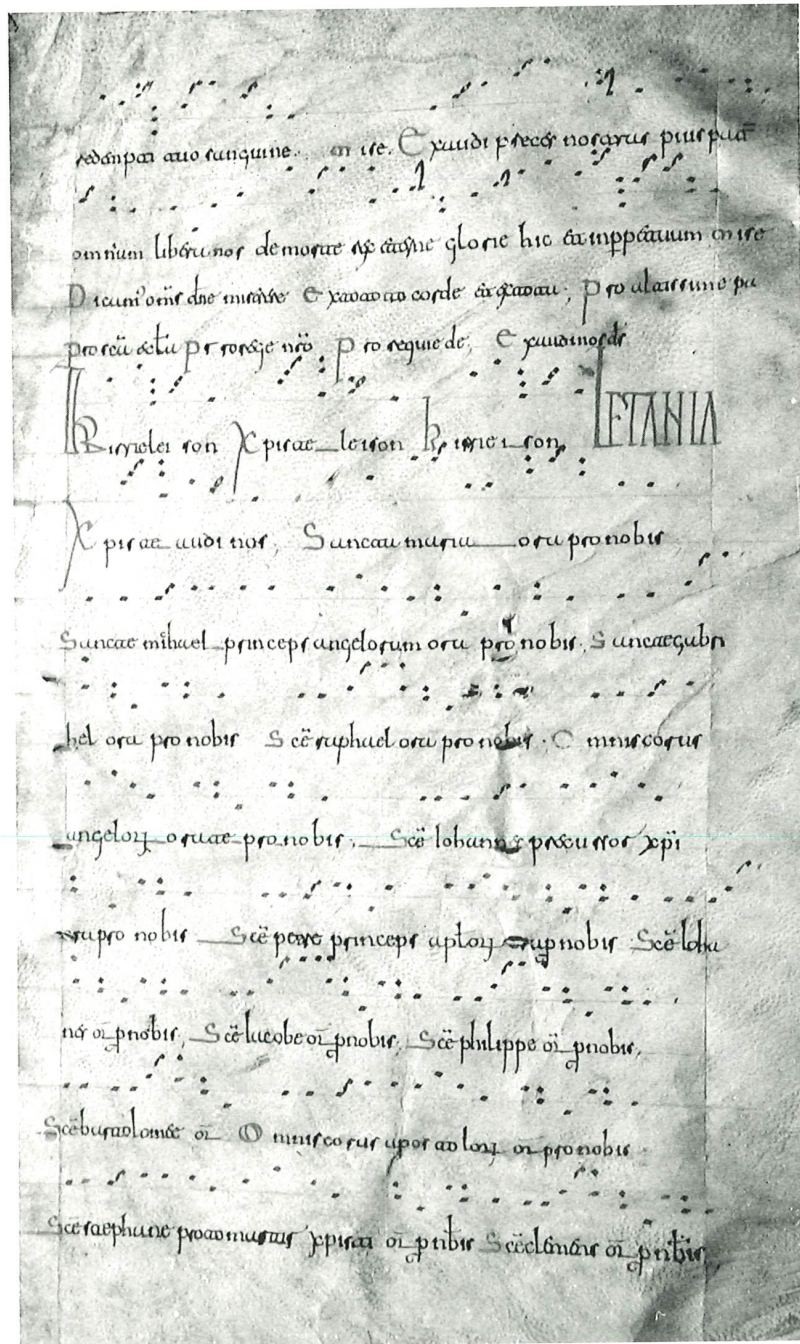 sanguine. m ise. Exaudi preces nostras pius
omnium libera nos de morte rex eterne glorie hic et in ppetuum m ise
Dicam' om̅s dn̅e Ex toto corde et ex tota; Pro
Pro requie de; Exaudi nos d̅s
Kirrielei son Xpiste leison Kirriei son LETANIA
Xpiste audi nos, Sancta maria ora pro nobis
Sancte mihael princeps angelorum ora pro nobis. Sancte gabri
hel ora pro nobis Sce̅ raphael ora pro nobis. Omnis corus
angeloꝝ orate pro nobis. Sce̅ Iohannes precursor xp̅i
ora pro nobis Sce̅ petre princeps aptl̅oꝝ ora ꝓ nobis Sce̅ Ioha
nes or̅ ꝓ nobis, Sce̅ Iacobe or̅ ꝓ nobis, Sce̅ philippe or̅ ꝓ nobis,
Sce̅ bartolomee or̅ Omnis corus apostoloꝝ or̅ pro nobis
Sce̅ stephane protomartir xpisti or̅ ꝓ nbis Sce̅ clemens or̅ ꝓ nbis,